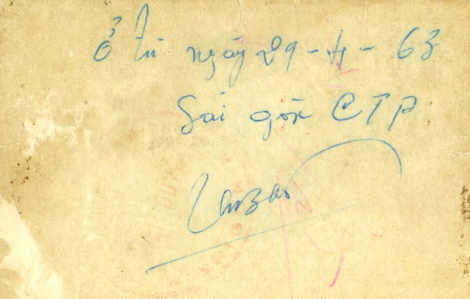 ở tù ngày 29-4-63
Sài gòn CTP